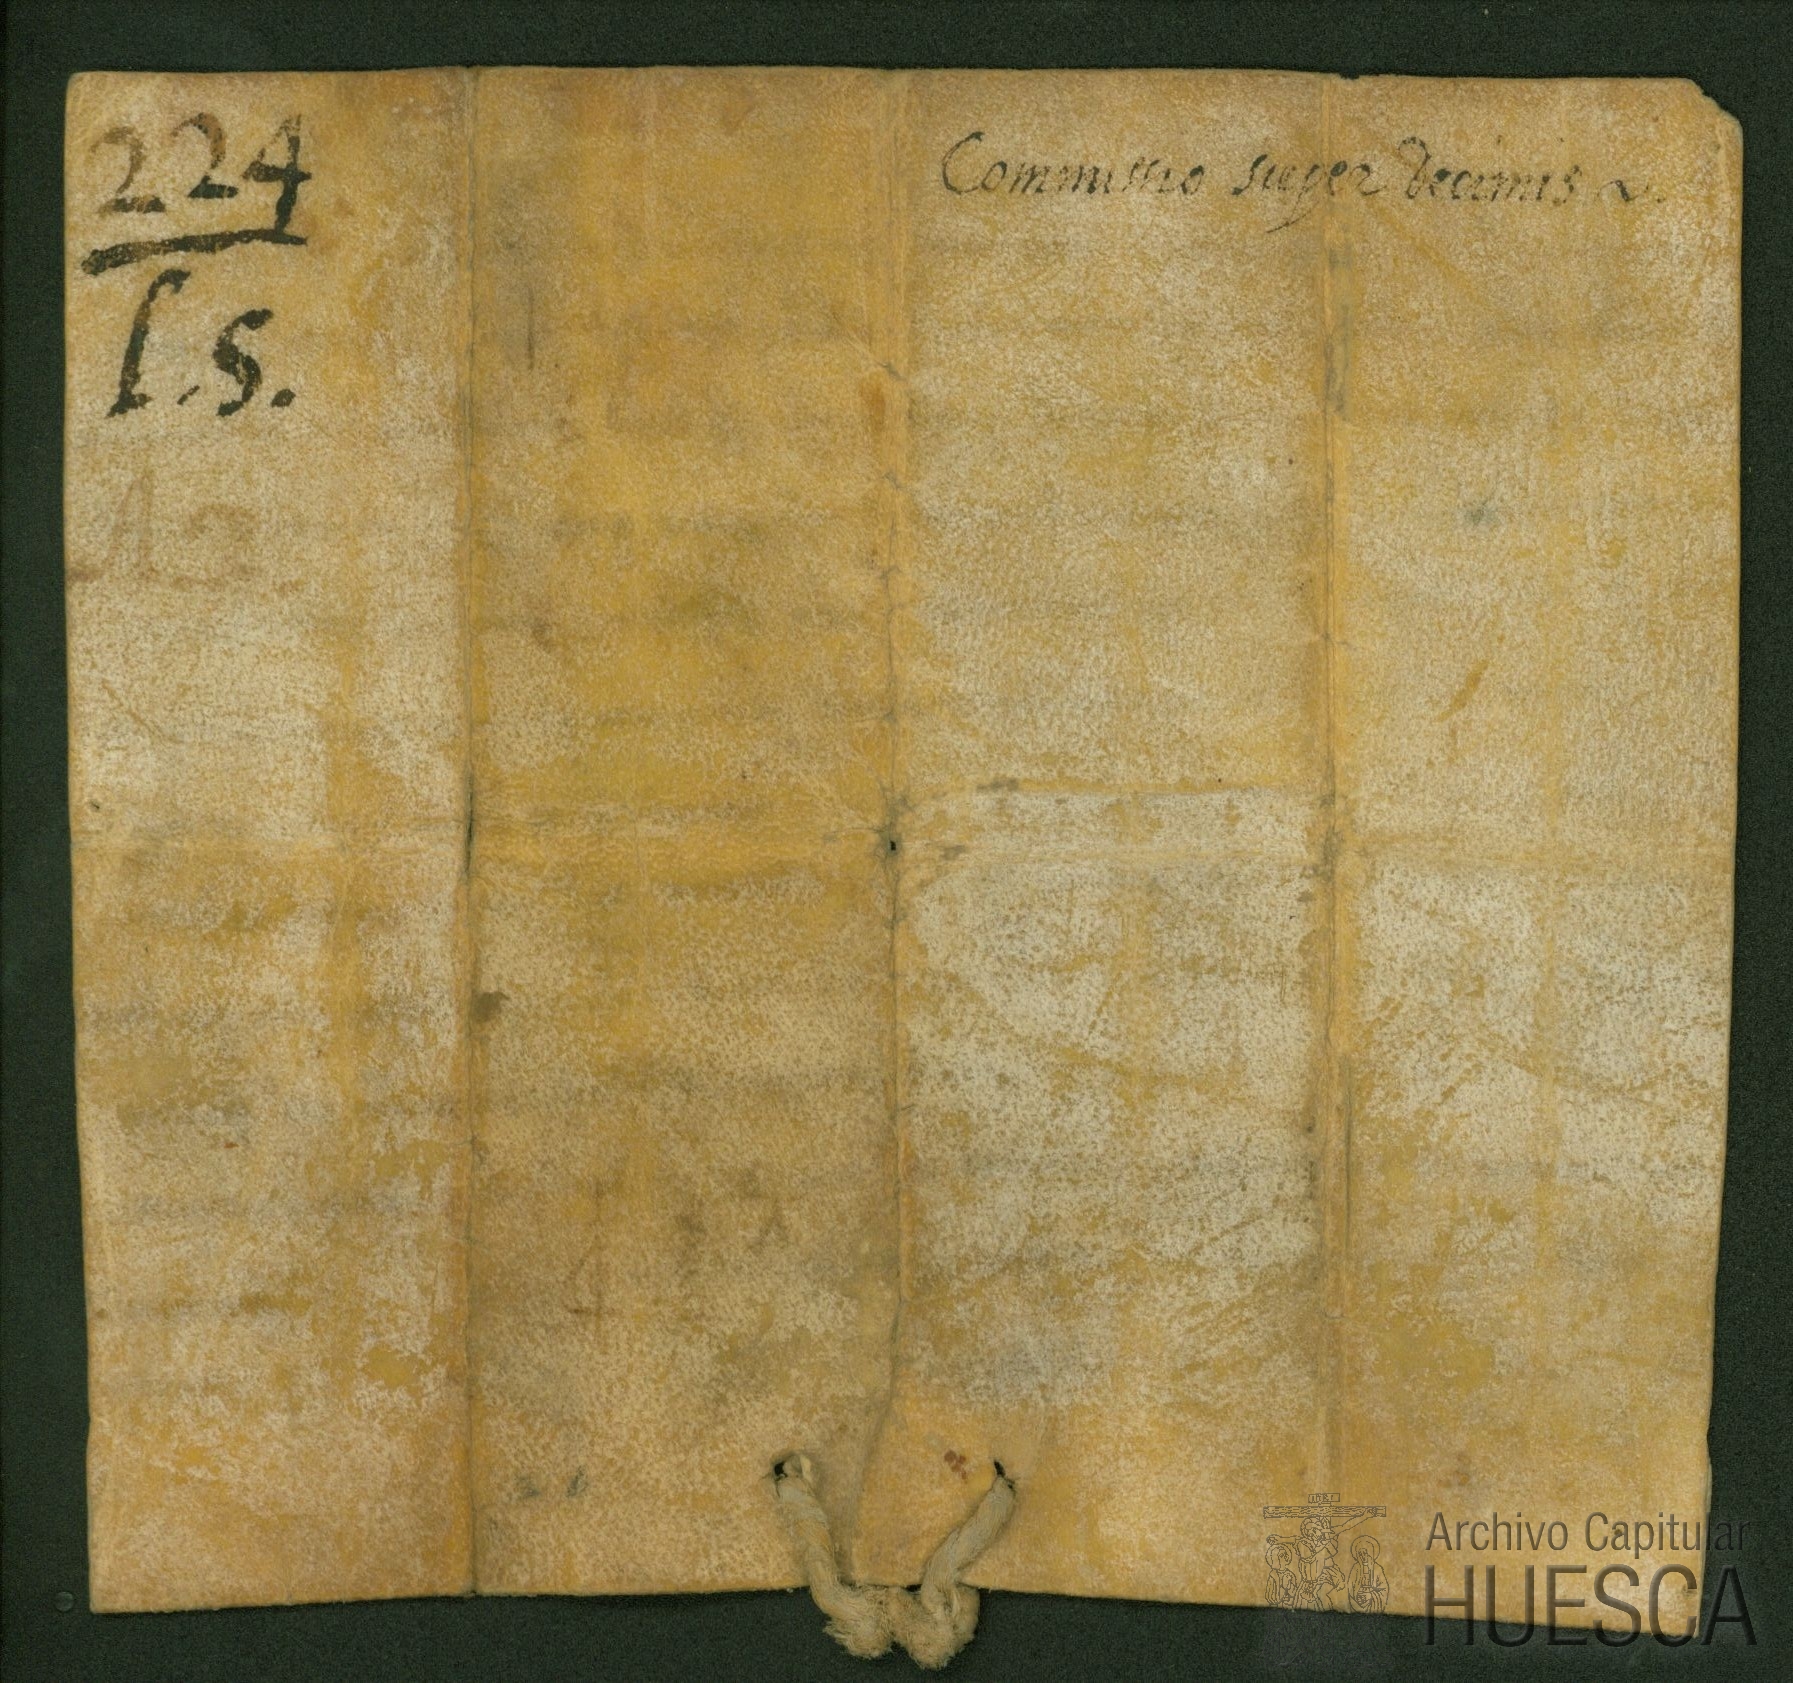 224
l.5.
Commissio super decimis
Archivo Capitular
HUESCA